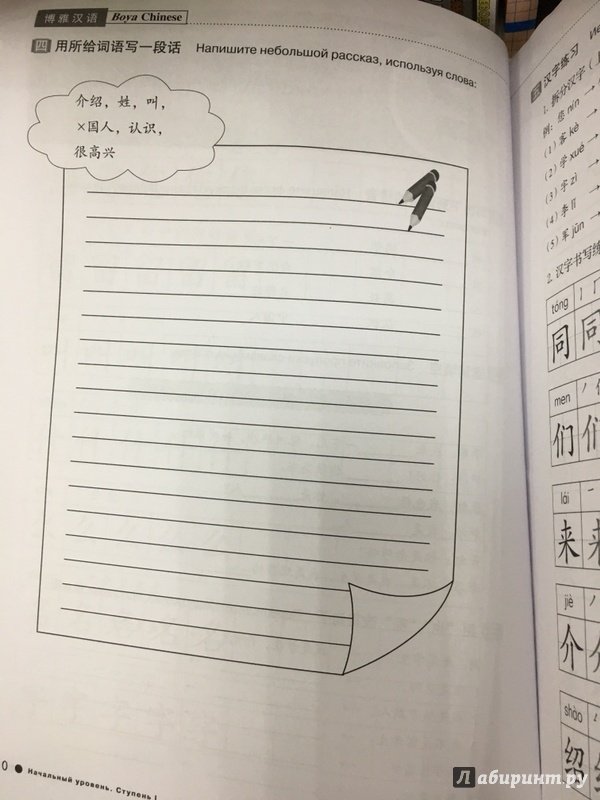 博雅汉语 Boya Chinese
四 用所给词语写一段话 Напишите небольшой рассказ, используя слова:
介绍，姓，叫，
×国人，认识，
很高兴
0 ● Начальный уровень. Ступень I
汉字练习
1. 拆分汉字
例：您 nín →
(1) 客 kè →
(2) 学 xué →
(3) 字 zì →
(4) 李 lǐ →
(5) 军 jūn →
2. 汉字书写练
tóng
同 同
men
们 们
lái
来 来
jiè
介 介
shào
绍
Лабиринт.ру